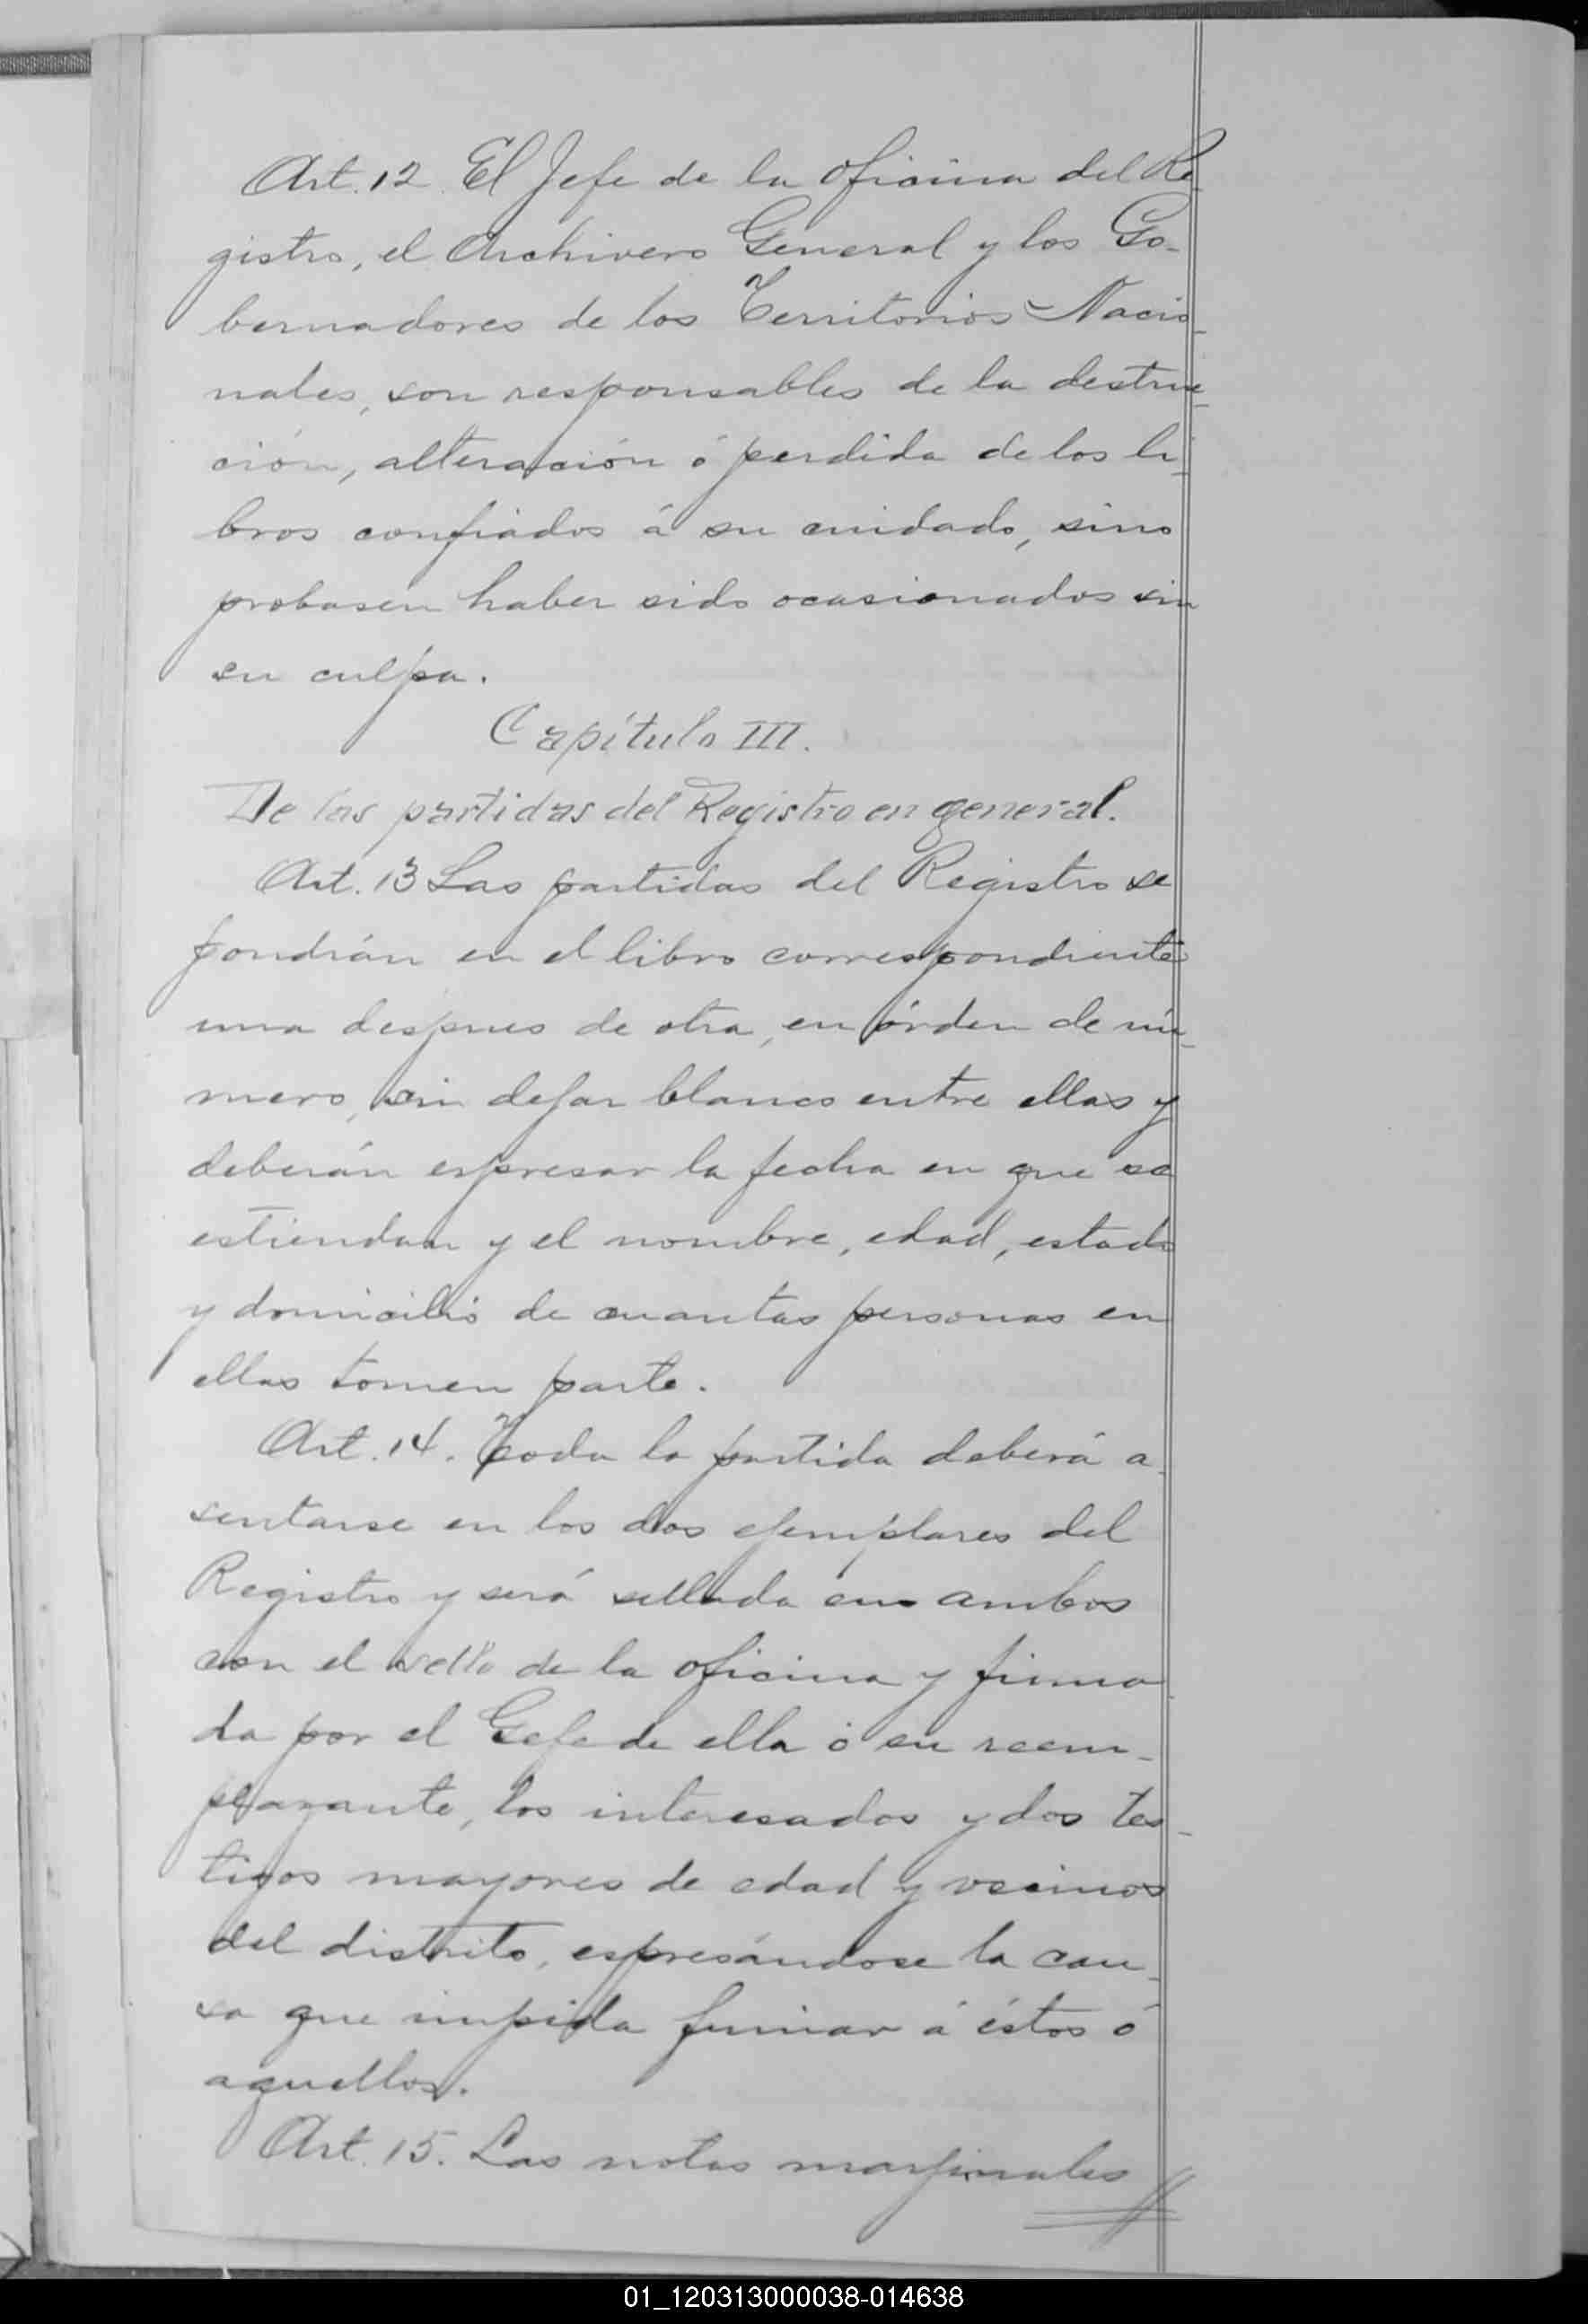 Art. 12 El Jefe de la oficina del Re-
gistro, el Archivero General y los Go-
bernadores de los Territorios Nacio-
nales, son responsables de la destruc-
ción, alteración ó perdida de los li-
bros confiados á su cuidado, sino
probasen haber sido ocasionados sin
su culpa.
Capítulo III.
De las partidas del Registro en general.
Art. 13 Las partidas del Registro se
pondrán en el libro correspondiente
una despues de otra, en órden de nú-
mero, sin dejar blanco entre ellas y
deberán espresar la fecha en que se
estiendan y el nombre, edad, estado
y domicilio de cuantas personas en
ellas tomen parte.
Art. 14. Toda la partida deberá a-
sentarse en los dos ejemplares del
Registro y será sellada en ambos
con el sello de la oficina y firma-
da por el Gefe de ella ó su reem-
plazante, los interesados y dos tes-
tigos mayores de edad y vecinos
del distrito, espresándose la cau-
sa que impida firmar á éstos ó
aquellos.
Art. 15. Las notas marginales
01_120313000038-014638